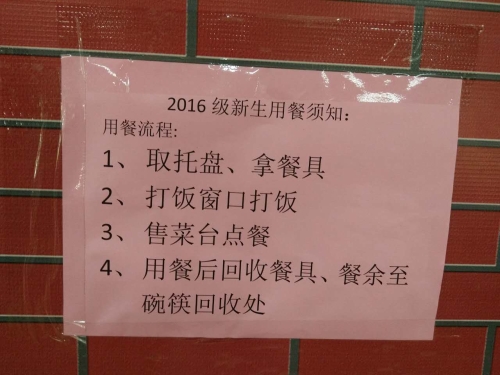 2016 级新生用餐须知：
用餐流程:
1、 取托盘、拿餐具
2、 打饭窗口打饭
3、 售菜台点餐
4、 用餐后回收餐具、餐余至
碗筷回收处